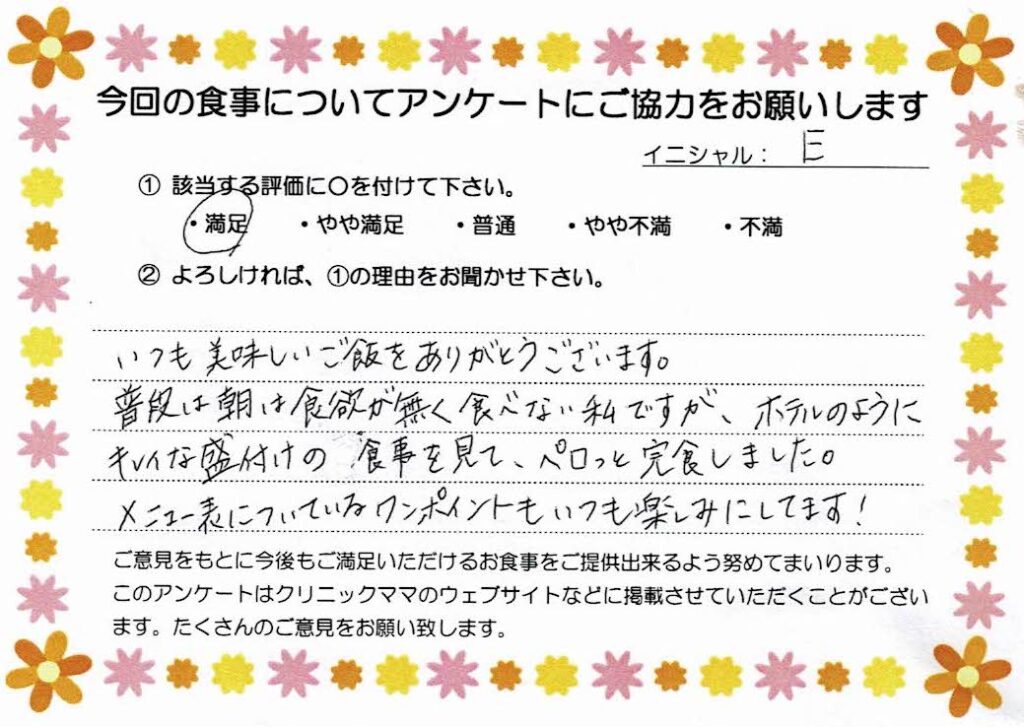 今回の食事についてアンケートにご協力をお願いします
イニシャル： E
① 該当する評価に〇を付けて下さい。
・満足 ・やや満足 ・普通 ・やや不満 ・不満
② よろしければ、①の理由をお聞かせ下さい。
いつも美味しいご飯をありがとうございます。
普段は朝は食欲が無く食べない私ですが、ホテルのように
キレイな盛付けの食事を見て、ペロっと完食しました。
メニュー表についているワンポイントもいつも楽しみにしてます！
ご意見をもとに今後もご満足いただけるお食事をご提供出来るよう努めてまいります。
このアンケートはクリニックママのウェブサイトなどに掲載させていただくことがござい
ます。たくさんのご意見をお願い致します。